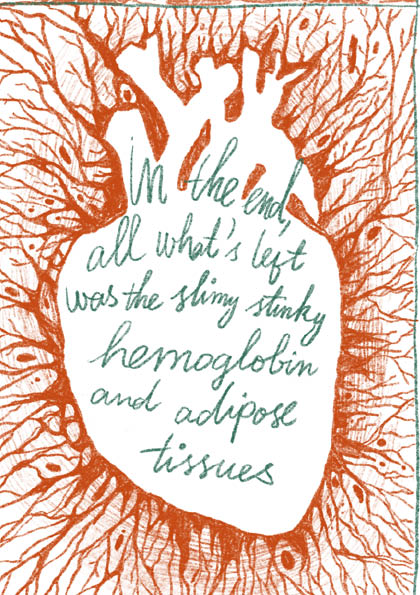 in the end,
all what's left
was the slimy stinky
hemoglobin
and adipose
tissues